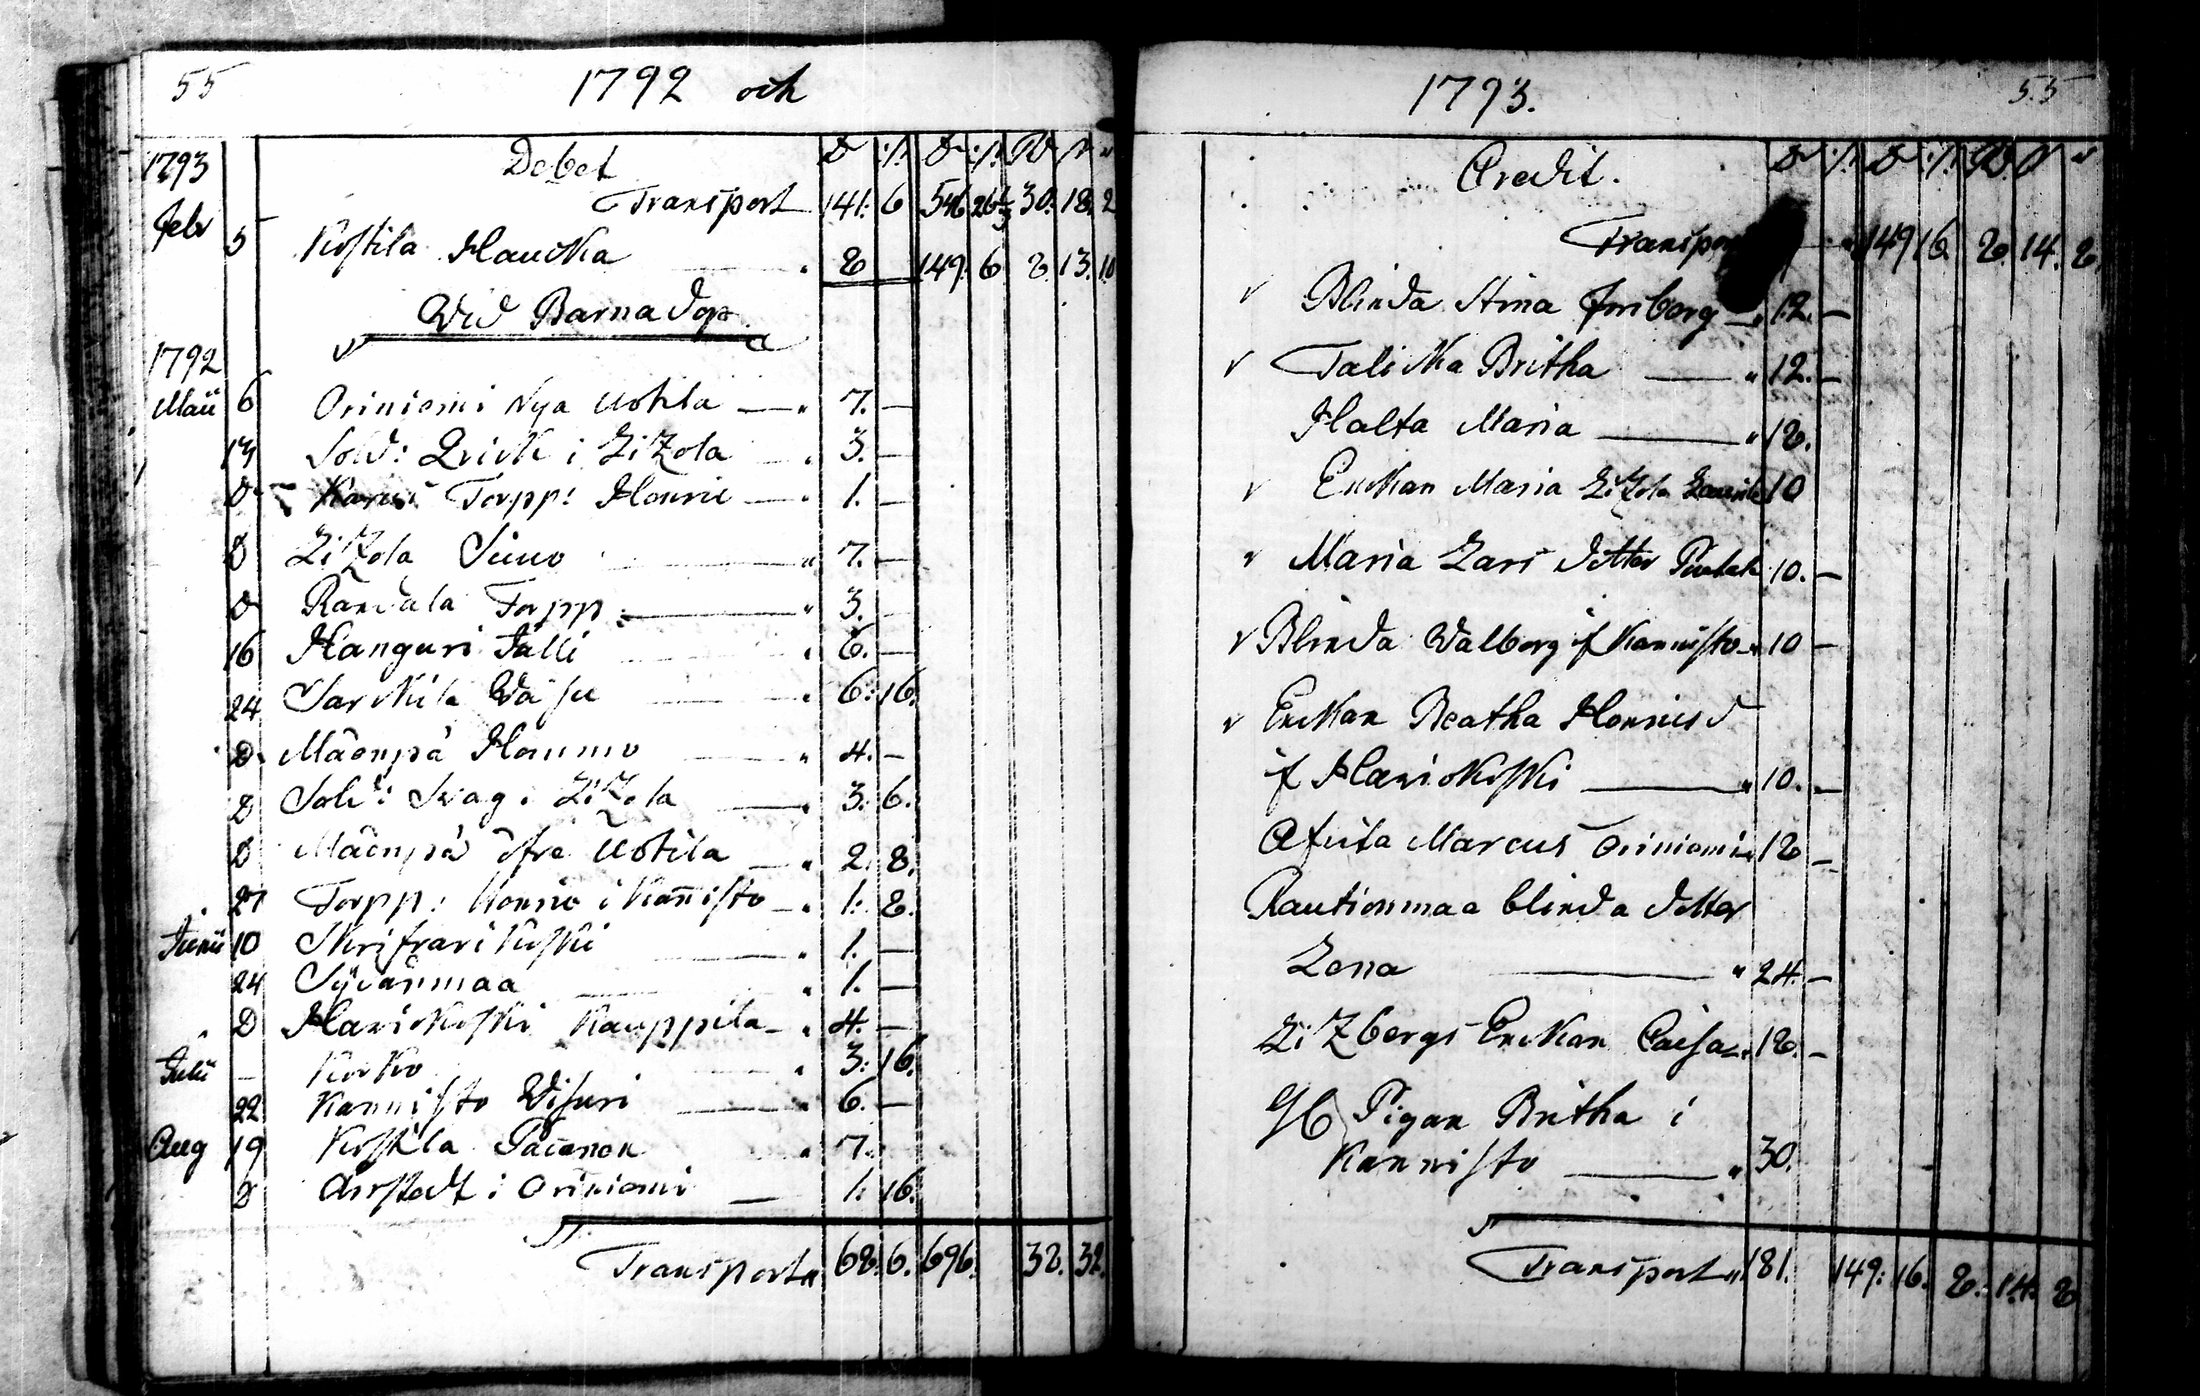 55 1792 och
1793 Debet D :/: D :/: R D
Transport 141: 6 546 26 30: 18. 2
Febr 5 Kostila Haucka " 8 149: 6 2. 13. 10
Wid Barnadop.
1792
Maii 6 Oriniemi Nya Uotila " 7. —
13 Sold: Qvick i Lizola " 3. —
D Torpp: Honric " 1. —
D Lizola Simo " 7. —
D Randala Torpp: " 3. —
16 Hanguri Jalli " 6. —
24 Sarckila " 6: 16.
D Mäenpä Hommo " 4. —
D Sold: Svag i Lizola " 3: 6.
D Mäenpä öfre Uotila " 2: 8.
27 Torpp: Honric i Kannisto " 1: 8.
Junii 10 Skrifvari Koski " 1. —
24 Syvänmaa " 1. —
D Havickoski Kauppila " 4. —
Julii — Korko " 3: 16.
22 Kannisto Visuri " 6. —
Aug 19 Koskila Pacanen " 7.
D i Oriniemi 1: 16.
Transport " 68: 6. 696. 32. 32.
1793. 55
Credit. D :/: D :/: R D
Transport 149 16. 2. 14. 2.
v Blinda Stina " 12. —
v Talicka Britha " 12. —
Halta Maria " 18.
v Enckan Maria Lizola 10
v Maria Lars dotter 10. —
v Blinda Walborg if Kannisto " 10 —
v Enckan Beatha Honricsd
if Havickoski " 10. —
Afvita Marcus Oriniemi " 18 —
Rautionmaa blinda dotter
Lena " 24. —
Lizbergs Enckan Caisa " 18. —
Pigan Britha i
Kannisto " 30.
Transport " 181. 149: 16. 2. 14. 2